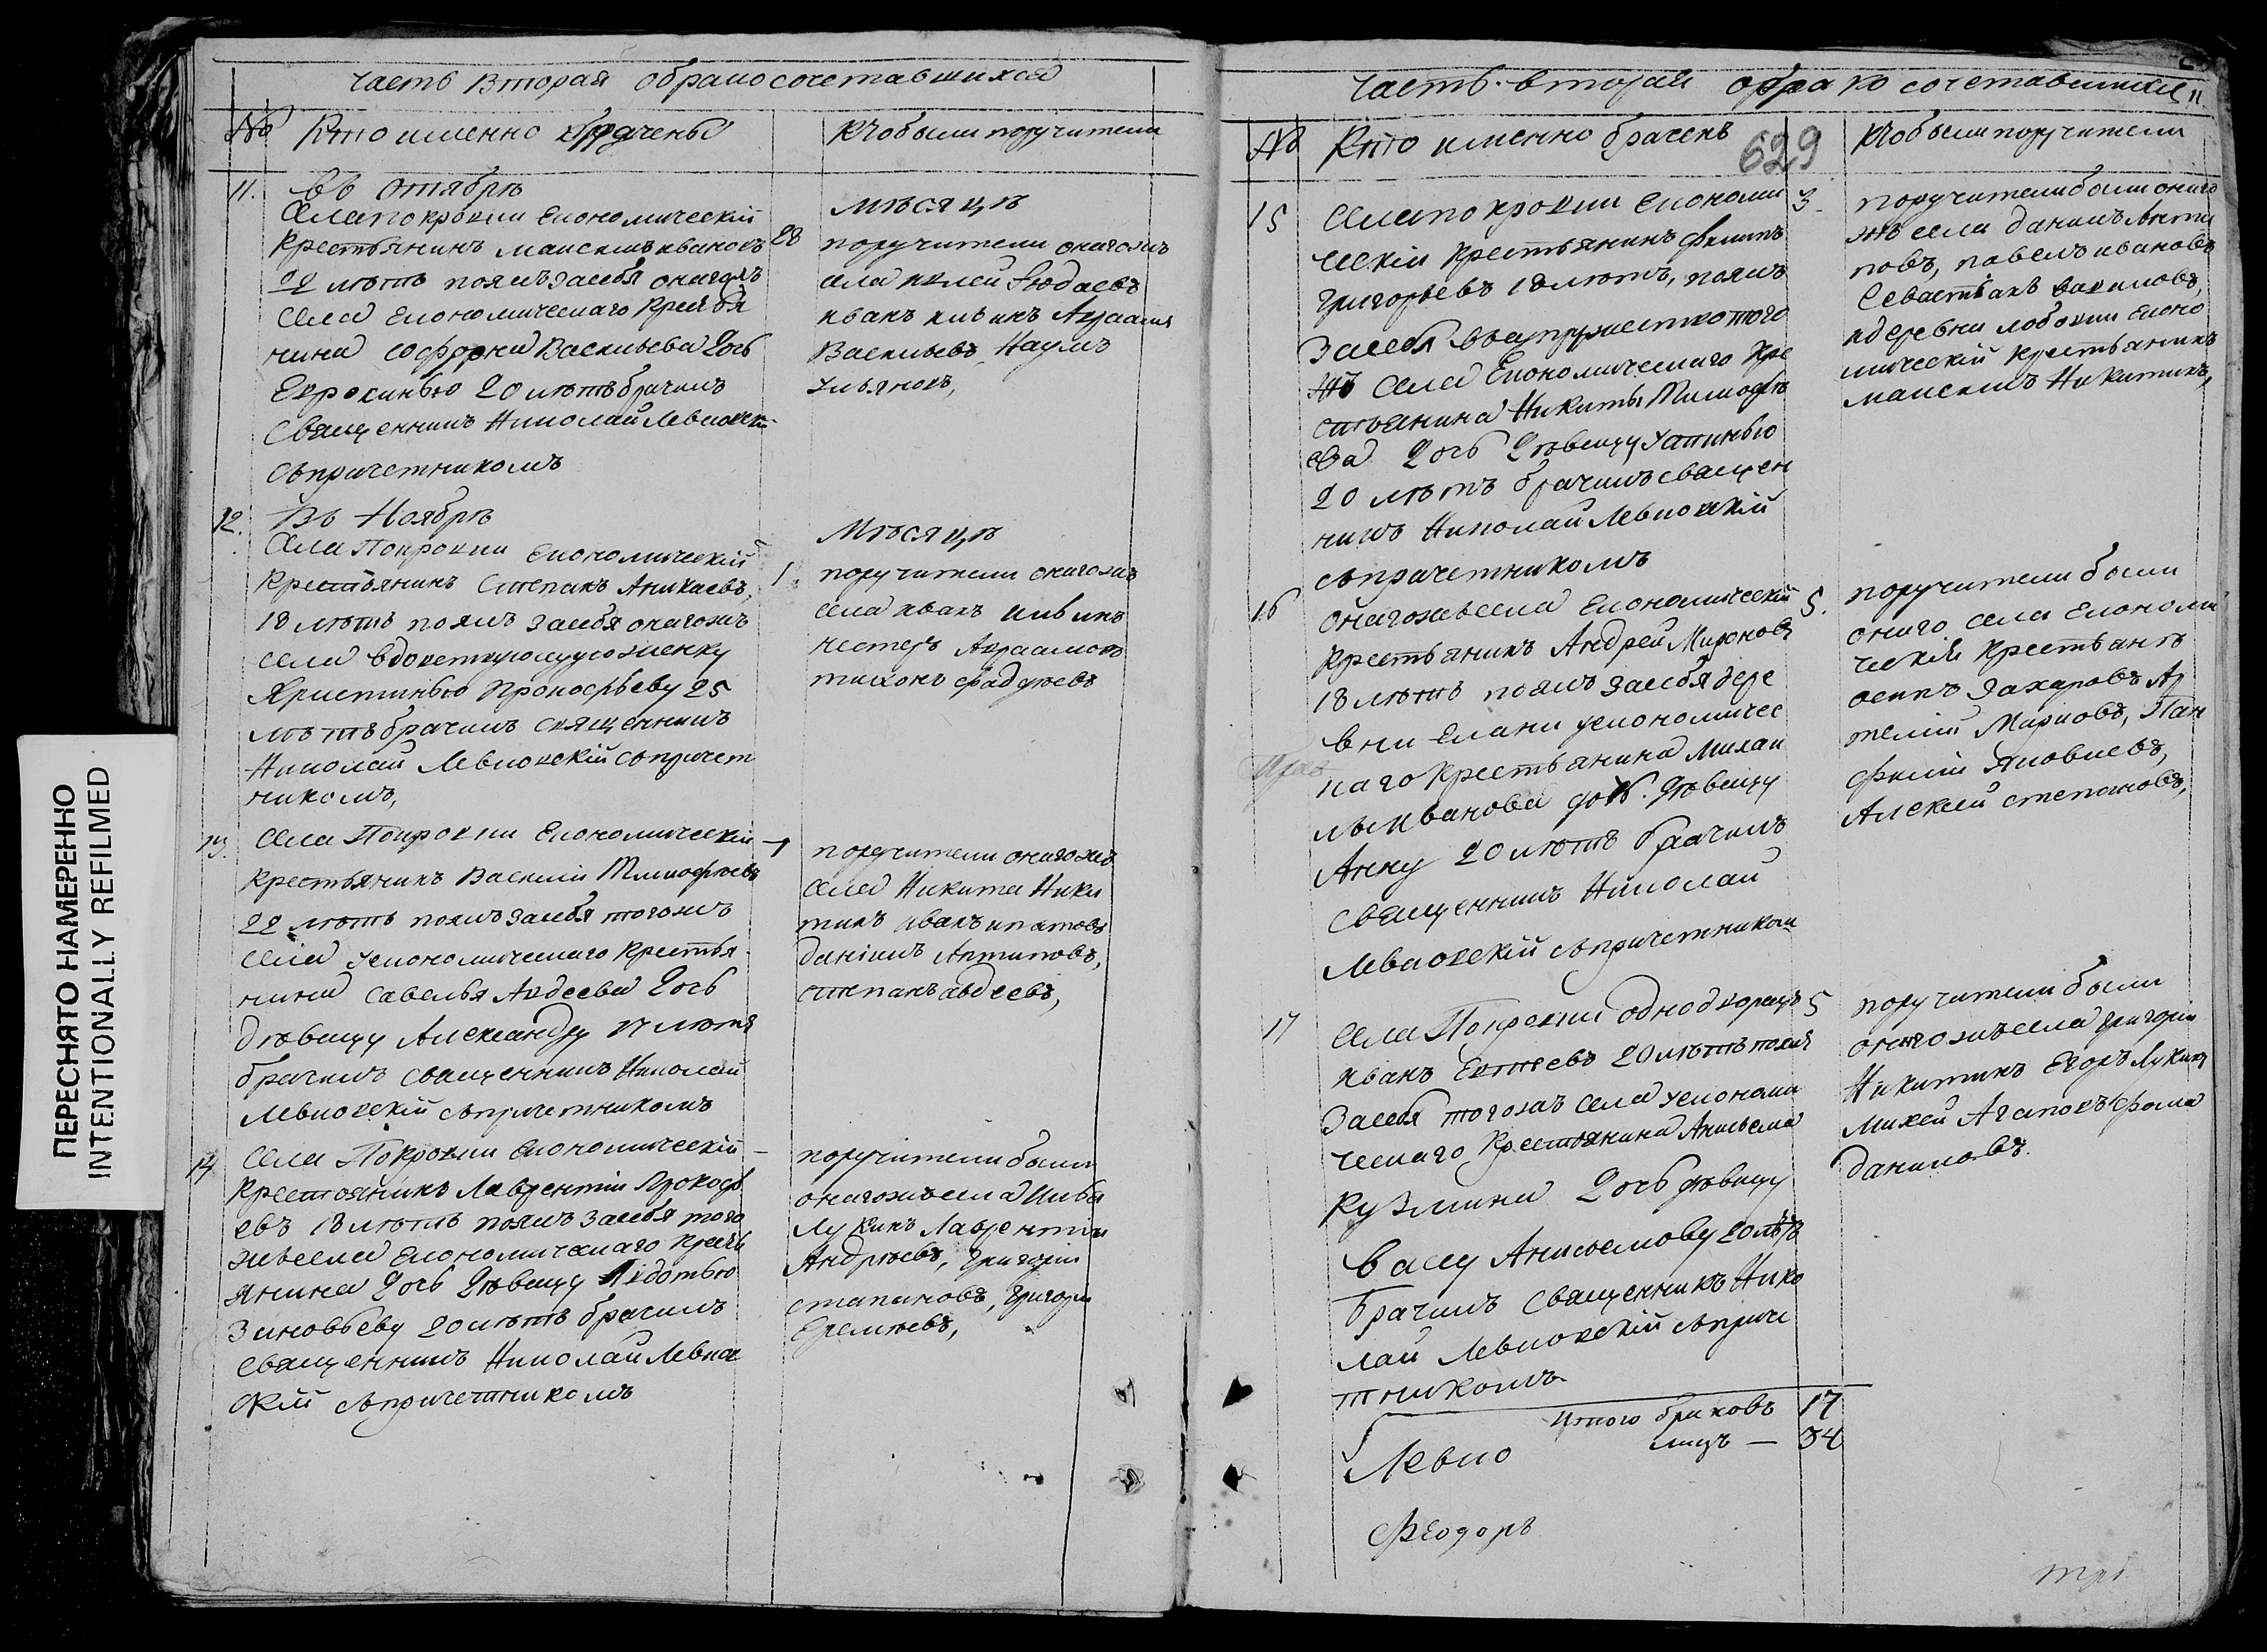 часть вторая обракосочетавшихся
№ Кто именно обрачены Кто были поручители
11. Въ Октябрѣ
мѣсяцѣ
Села покровки Економическій
Крестьянинъ Максимъ ивановъ 28
22 лѣтъ поялъ засебя оногожъ
Села економическаго Крестья
нина софрона Васильева дочь
Евросинью 20 лѣтъ брачилъ
Священникъ Николай Левковскій
съпричетникомъ
поручители оногожъ
села
иванъ Авраамъ
Васильевъ, Наумъ
ульяновъ,
12. Въ Ноябрѣ
Мѣсяцѣ
Села Покровки Економическій
Крестьянинъ Степанъ Аникаевъ, 1.
18 лѣтъ поялъ засебя оногожъ
села вдовствующую женку
Христинью Прокофьеву 25
лѣтъ брачилъ священникъ
Николай Левковскій съпричет
никомъ,
поручители оногожъ
села иванъ
нестеръ Авраамовъ
тихонъ фаддѣевъ
13. Села Покровки Економическій 1
Крестьянинъ Василій Тимофѣевъ
22 лѣтъ поялъ засебя тогожъ
села економическаго Крестья
нина Савелья Авдеева дочь
дѣвицу Александру 17 лѣтъ
брачилъ священникъ Николай
Левковскій съпричетникомъ
поручители оногожъ
села Никита Ники
тинъ иванъ игнатовъ
даніилъ Антиповъ,
степанъ авдеевъ,
14 Села Покровки Економическій
Крестьянинъ Лаврентій Прокофь
евъ 18 лѣтъ поялъ засебя того
жъ села економическаго крестъ
янина дочь дѣвицу Авдотью
Зиновьеву 20 лѣтъ брачилъ
священникъ Николай Левков
скій съпричетникомъ
поручители были
оногожъ села Илья
Лукинъ Лаврентій
Андрѣевъ, Григорій
степановъ, Григорій
Еремѣевъ,
часть вторая обракосочетавшихся
№ Кто именно брачены 629 Кто были поручители
15 Села покровки економи 3.
ческій крестьянинъ филипъ
Григорьевъ 18 лѣтъ, поялъ
засебя въ супружество того
жъ села Економическаго кре
стьянина Никиты Тимофѣ
ева дочь дѣвицу устинью
20 лѣтъ брачилъ священ
никъ Николай Левковскій
съпричетникомъ
поручители были оного
жъ села данилъ Анти
повъ, павелъ ивановъ
Севастьянъ вакиловъ,
идеревни лобовки еконо
мическій крестьянинъ
максимъ Никитинъ,
16 оногожъ села економическій 5.
Крестьянинъ Андрей Мироновъ
18 лѣтъ поялъ засебя дере
вни елани економичес
каго крестьянина михаи
лы иванова доч. дѣвицу
Анну 20 лѣтъ брачилъ
священникъ Николай
Левковскій съпричетникомъ
поручители были
оного села економи
ческія крестьянѣ
осипъ Захаровъ Ар
темій Марковъ, Пан
филій яковлевъ,
Алексѣй степановъ,
17 Села Покровки однодворецъ 5
иванъ Евтеевъ 20 лѣтъ поялъ
засебя тогожъ села економи
ческаго крестьянина Анисима
Кузмина дочь дѣвицу
Васу Анисимову 20 лѣтъ
брачилъ священникъ Нико
лай Левковскій съприче
тникомъ
поручители были
оногожъ села григорій
Никитинъ Егоръ Лукинъ
михей Агаповъ фома
даниловъ.
Итого браковъ 17
лицъ — 34
Левко
Феодоръ
ПЕРЕСНЯТО НАМЕРЕННО
INTENTIONALLY REFILMED